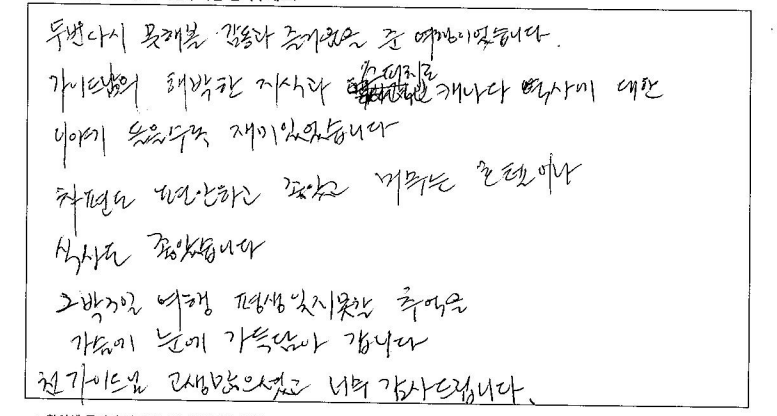 두번다시 못해볼 감동과 즐거움을 준 여행이었습니다.
가이드님의 해박한 지식과 스피치로 캐나다 역사에 대한
이야기 들을수록 재미있었습니다
차편도 편안하고 좋았고 머무는 호텔이나
식사도 좋았습니다
2박3일 여행 평생잊지못할 추억을
가슴에 눈에 가득담아 갑니다
천가이드님 고생많으셨고 너무 감사드립니다.